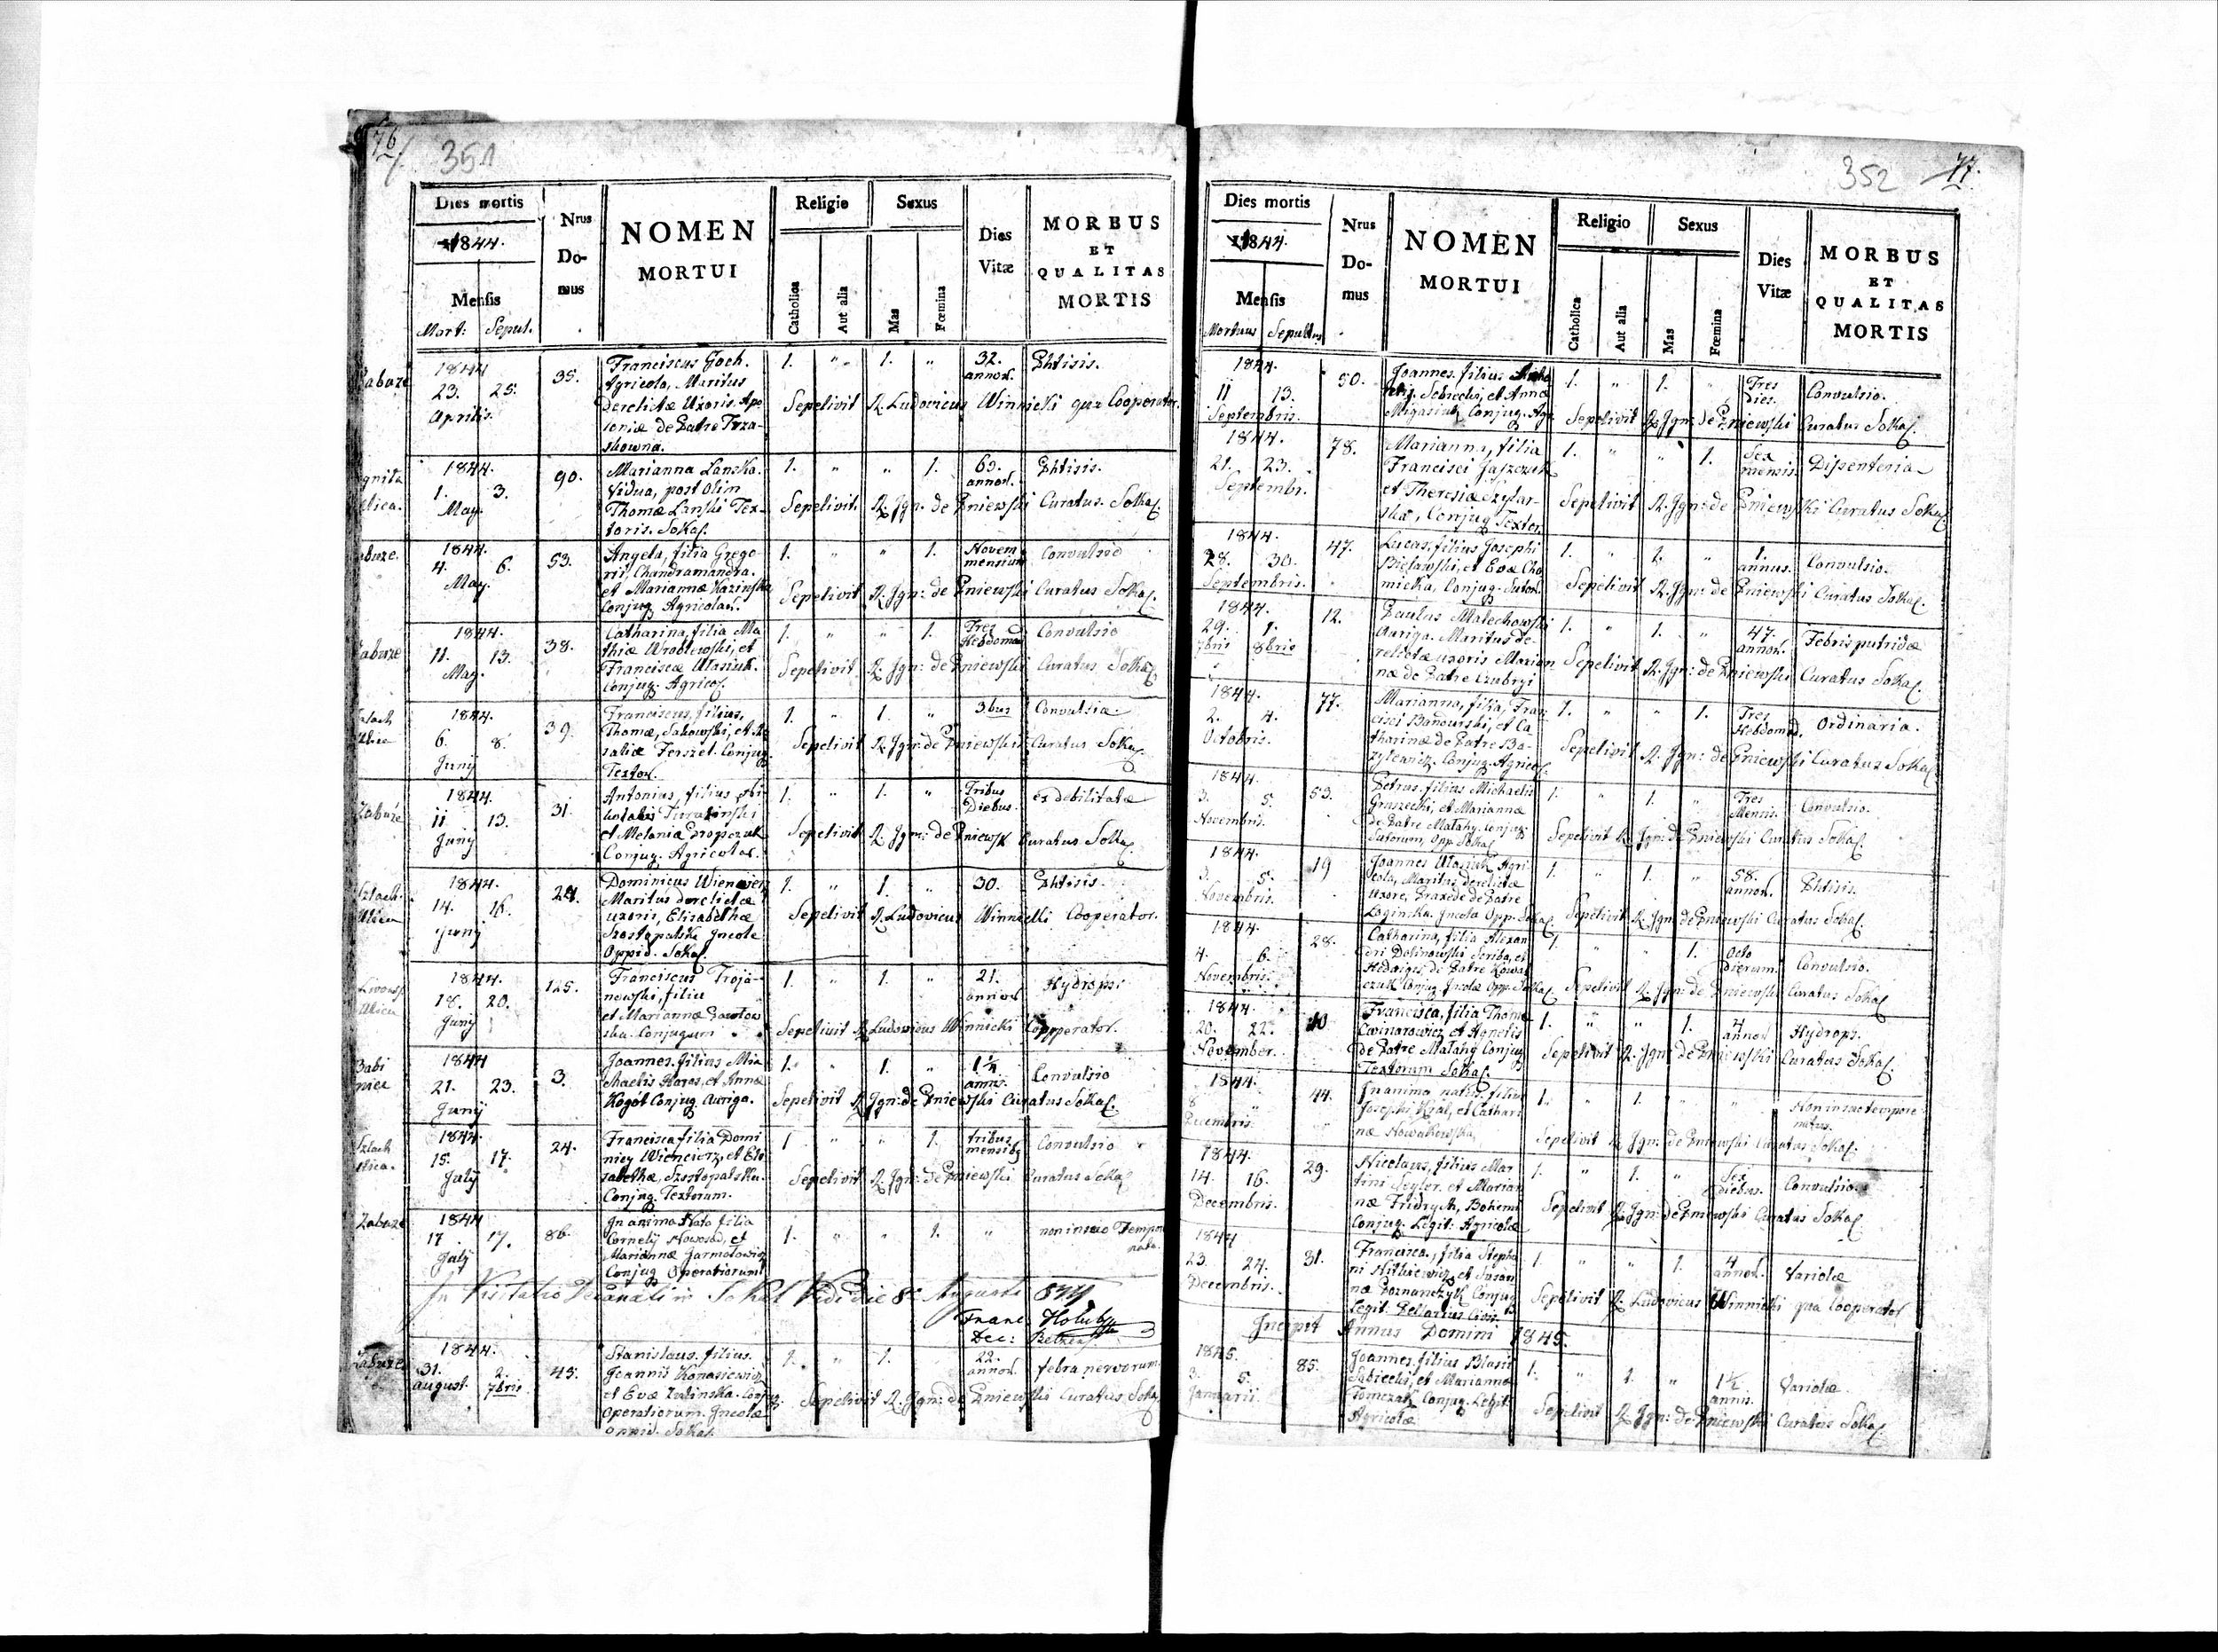 76
351
Dies mortis
1844.
Mensis
Mort: Sepul.
Nrus
Do-
mus
NOMEN
MORTUI
Religio
Catholica
Aut alia
Sexus
Mas
Fœmina
Dies
Vitæ
MORBUS
ET
QUALITAS
MORTIS
1844
23. 25.
Aprilis.
35.
Franciscus Goch.
Agricola, Maritus
derelictæ Uxoris Apo
loniæ de Patre Trza-
skowna.
1. " 1. " 32. annor. Phtisis.
Sepelivit R. Ludovicus Winnicki qua Cooperator.
1844.
1. 3.
May.
90.
Marianna Lanska.
Vidua, post Olim
Thomæ Lanski Tex-
toris. Sokal.
1. " " 1. 60. annor. Phtisis.
Sepelivit R. Ign: de Pniewski Curatus Sokal.
abuze.
1844.
4. 6.
May.
53.
Angela, filia Grego
rii, Chandramandra.
et Mariannæ Kazinska
Conjug. Agricolar.
1. " " 1. Novem mensium Convulsio
Sepelivit R. Ign: de Pniewski Curatus Sokal.
Zabuze
1844.
11. 13.
May.
38.
Catharina, filia Ma
thiæ Wroblewski, et
Franciscæ Wlasiuk.
Conjug. Agricol.
1. " " 1. Tres Hebdomad Convulsio
Sepelivit R. Ign: de Pniewski Curatus Sokal.
1844.
6. 8.
Juny
39.
Franciscus, filius,
Thomæ, Sakowski, et Ro
saliæ Ferszet. Conjug.
Textor.
1. " 1. " 3bus Convulsia.
Sepelivit R. Ign: de Pniewski Curatus Sokal.
Zabuze
1844.
11 13.
Juny
31.
Antonius, filius
et Melania Propszuk
Conjug. Agricolar.
1. " 1. " Tribus Diebus. ex debilitate
Sepelivit R. Ign: de Pniewsk Curatus Sokal.
Szlach.
Ulica
1844.
14. 16.
Juny
24.
Dominicus Wiencierz
Maritus derelictæ
uxoris, Elisabethæ
Szostopalska Incole
Oppid. Sokal.
1. " 1. " 30. Phtisis.
Sepelivit R. Ludovicus Winnicki Cooperator.
Ulica
1844.
18. 20.
Juny
125.
Franciscus Troja-
nowski, filius
et Mariannæ Pawlow
ska. Conjugum
1. " 1. " 21. annor Hydrops.
Sepelivit R. Ludovicus Winnicki Coopperator.
Babi
niec
1844
21. 23.
Juny
3.
Joannes, filius Mi
chaelis Karas, et Annæ
Kogot Conjug. Auriga.
1. " 1. " 1 1/4 annis. Convulsio
Sepelivit R. Ign: de Pniewski Curatus Sokal.
Szlach
Ulica.
1844.
15. 17.
July
24.
Francisca filia Domi
nicy Wiencierz, et Eli
zabethæ, Szostopalska.
Conjug. Textorum.
1 " " 1. tribus mensibs Convulsio
Sepelivit R. Ign: de Pniewski Curatus Sokal
Zabuze
1844
17 17.
July
86.
In anima Nata filia
Cornely Nowosad, et
Mariannæ Jarmolowicz
Conjug. Operatiorum
1. " " 1. " non in suo Tempor nata.
In Visitatio Decanali in Sokal Vidi die 8a Augusti 844
Franc. Holub
Dec: Belzen
Zabuze
1844.
31. 2.
August. 7bris
45.
Stanislaus, filius.
Joannis Konasiewicz
et Evæ Zulinska. Conjug.
Operatiorum. Incolæ
Oppid. Sokal.
1. " 1. 22. annor. febra nervorum
Sepelivit R. Ign: de Pniewski Curatus Sokal
352
77.
Dies mortis
1844.
Mensis
Mortuus Sepultus
Nrus
Do-
mus
NOMEN
MORTUI
Religio
Catholica
Aut alia
Sexus
Mas
Fœmina
Dies
Vitæ
MORBUS
ET
QUALITAS
MORTIS
1844.
11 13.
Septembris.
50.
Joannes. filius
Sobieckis, et Annæ
Migasiuk Conjug. Agr.
1. " 1. " Tres Dies. Convulsio.
Sepelivit R. Ign: de Pniewski Curatus Sokal.
1844.
21. 23.
Septembr.
78.
Marianna, filia
Francisci Gajszczuk
et Theresiæ Szylar-
ska, Conjug. Textor.
1. " " 1. Sex mensis. Dissenteria
Sepelivit R. Ign: de Pniewski Curatus Sokal.
1844.
28. 30.
Septembris.
47.
Lucas, filius Josephi
Bielawski, et Evæ Cho
micka, Conjug. Sutor.
1. " 1. " 1. annus. Convulsio.
Sepelivit R. Ign: de Pniewski Curatus Sokal.
1844.
29. 1.
7bris 8bris
12.
Paulus Malechowski
Auriga. Maritus de-
relictæ uxoris Marian
næ de Patre Czubryj
1. " 1. " 47. annor. Febris putridæ
Sepelivit R. Ign: de Pniewski Curatus Sokal.
1844.
2. 4.
Octobris.
77.
Marianna, filia, Fran
cisci Banowski, et Ca
tharinæ de Patre Ba-
zylewicz. Conjug. Agricol.
1. " " 1. Tres Hebdomad. Ordinaria.
Sepelivit R. Ign: de Pniewski Curatus Sokal.
1844.
3. 5.
Novembris.
53.
Petrus. filius Michaelis
Gruszecki, et Mariannæ
de Patre Malahy. Conjug:
Sutorum, Opp. Sokal
1. " 1. " Tres Mensis. Convulsio.
Sepelivit R. Ign: de Pniewski Curatus Sokal.
1844.
3. 5.
Novembris.
19
Joannes Wlasiuk Agri
cola, Maritus derelictæ
uxore, Praxede de Patre
Loginska. Incola Opp. Sokal.
1. " 1. " 58. annor. Phtisis.
Sepelivit R. Ign: de Pniewski Curatus Sokal.
1844.
4. 6.
Novembris.
28.
Catharina, filia Alexan
dri Dolinowski Scriba, et
Hedwiges, de Patre Kowal
czuk Conjug. Incolæ Opp. Sokal.
1. " " 1. Octo Dierum. Convulsio.
Sepelivit R. Ign: de Pniewski Curatus Sokal
1844.
20. 22.
November.
40
Francisca, filia Thomæ
Cwinarowicz, et Agnetis
de Patre Malahy Conjug
Textorum Sokal.
1. " " 1. 4 annor Hydrops.
Sepelivit R. Ign: de Pniewski Curatus Sokal.
1844.
8 "
Decembris.
44.
Inanima natus, filius
Josephi Kral, et Cathari
næ Nowakowska,
1. " 1. " " Non in suo tempore natus.
Sepelivit R. Ign: de Pniewski Curatus Sokal.
1844.
14. 16.
Decembris.
29.
Nicolaus, filius Mar
tini Segler. et Marian
næ Fridrych, Bohemi
Conjug. Legit. Agricolæ
1. " 1. " Sex Diebus. Convulsio.
Sepelivit R. Ign: de Pniewski Curatus Sokal.
1844
23. 24.
Decembris.
31.
Francisca, filia Stepha
ni Nitkiewicz, et Susan
næ Poznanczyk Conjug
Legit. Pellarius Civis.
1. " " 1. 4 annor. Variolæ
Sepelivit R. Ludovicus Winnicki qua Cooperator
Incipit Annus Domini 1845.
1845.
3. 5.
Januarii.
85.
Joannes, filius Blasii
Sobiecki, et Mariannæ
Tomczak, Conjug. Legit.
Agricolæ
1. " 1. " 1 1/2 annis. Variolæ.
Sepelivit R. Ign: de Pniewski Curatus Sokal.